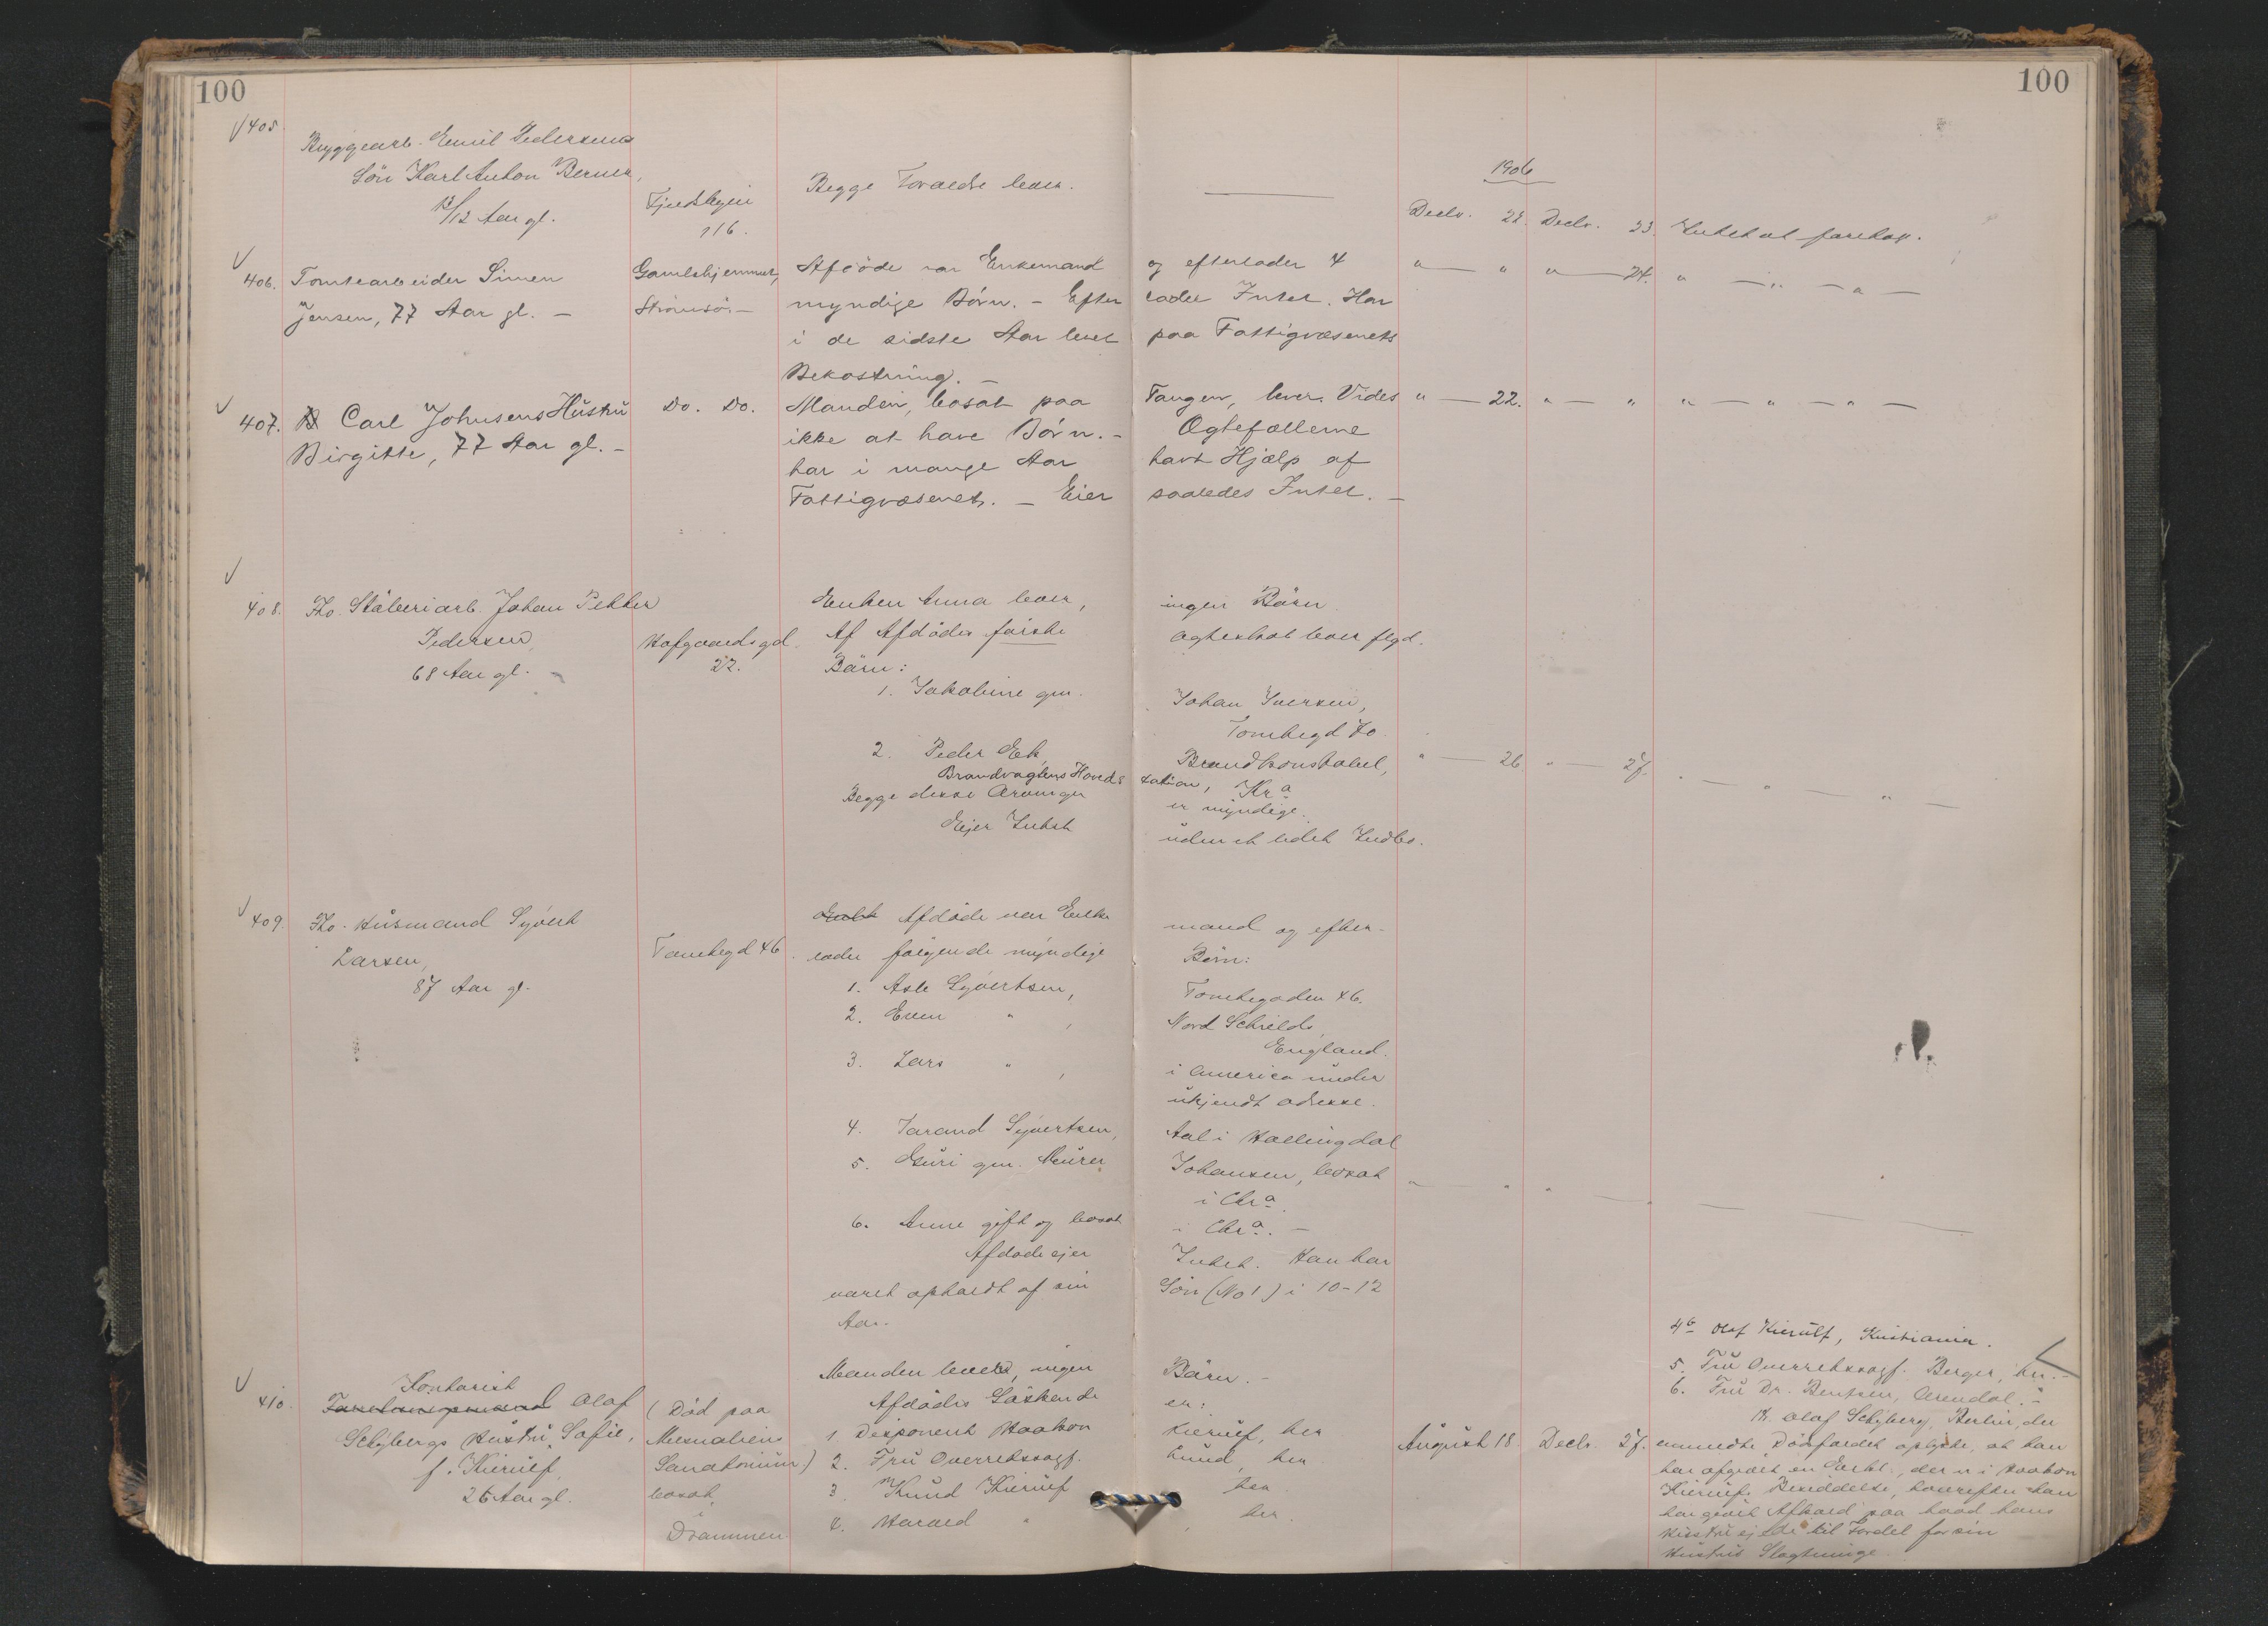 100
100
405.
Byggearb. Emil Pedersens
Sön Karl Anton Berner,
12/12 Aar gl.
116.
Begge Forældre lever.
1906
Decbr. 22. Decbr. 23. Intet at foretage.
406. Tomtearbeider Simen
Jensen, 77 Aar gl. —
Gamlehjemmet,
Strømsö. —
Afdöde var Enkemand og efterlader 4
myndige Börn. — Efterlader Intet. Har
i de sidste Aar levet paa Fattigvæsenets
Bekostning. —
" — " " — 24. " — " — " —
407. Carl Johnsens Hustru
Birgitte, 77 Aar gl. —
Do. Do.
Manden, bosat paa Tangen, lever. Vides
ikke at have Börn. — Ægtefællerne
har i mange Aar havt Hjælp af
Fattigvæsenet. — Eier saaledes Intet. —
" — 22. " — " " — " — " —
408. Fho. Johan Petter
Pedersen,
68 Aar gl.
Hofgaardsgd.
22.
Enken Anna lever, ingen Börn.
Af Afdödes første Ægteskab lever flgd.
Börn:
1. Jakobine gm. Johan Iversen,
Tomtegd 70.
2. Peder Ek, Brandkonstabel,
Brandvagtens Hovedstation, Kra
Begge disse Arvinger er myndige.
Ejer Intet uden et lidet Indbo.
" — 26. " — 27. " — " — " —
409. Fho. Husmand Syvert
Larsen,
87 Aar gl.
Tomtegd 46.
Afdöde var Enkemand og efter-
lader følgende myndige Börn:
1. Asle Syvertsen, Tomtegaden 46.
2. Even " , Nord Schields,
England.
3. Lars " , i America under
ukjendt adresse.
4. Tarand Syvertsen, Aal i Hallingdal
5. Guri gm. Murer Johansen, bosat
i Chra.
6. Anne gift og bosat i Chra. —
Afdöde ejer Intet. Han har
været opholdt af sin Sön (No 1) i 10-12
Aar.
410. Kontorist
Olaf
Schybergs Hustru Sofie,
f. Kierulf,
26 Aar gl.
(Död paa
Mesnaliens
Sanatorium.)
bosat
i
Drammen.
Manden lever, ingen Börn. —
Afdödes Söskende er:
1. Disponent Haakon Kierulf, her
2. Fru Overretssagf. Lund, her
3. Knud Kierulf her
4. Harald " , her.
August 18. Decbr. 27.
4b Olaf Kierulf, Kristiania.
5. Fru Overretssagf. Berger, her. —
6. Fru Dr. Bentsen, Arendal. —
Hr. Olaf Schyberg, Berlin, der
anmeldte Dödsfaldet oplyste, at han
har afgivet en Erkl., der er i Haakon
Kierulfs Besiddelse, hvorefter han
har givet Afkald paa hvad hans
Hustru ejede til Fordel for sin
Hustrus Slægtninge.